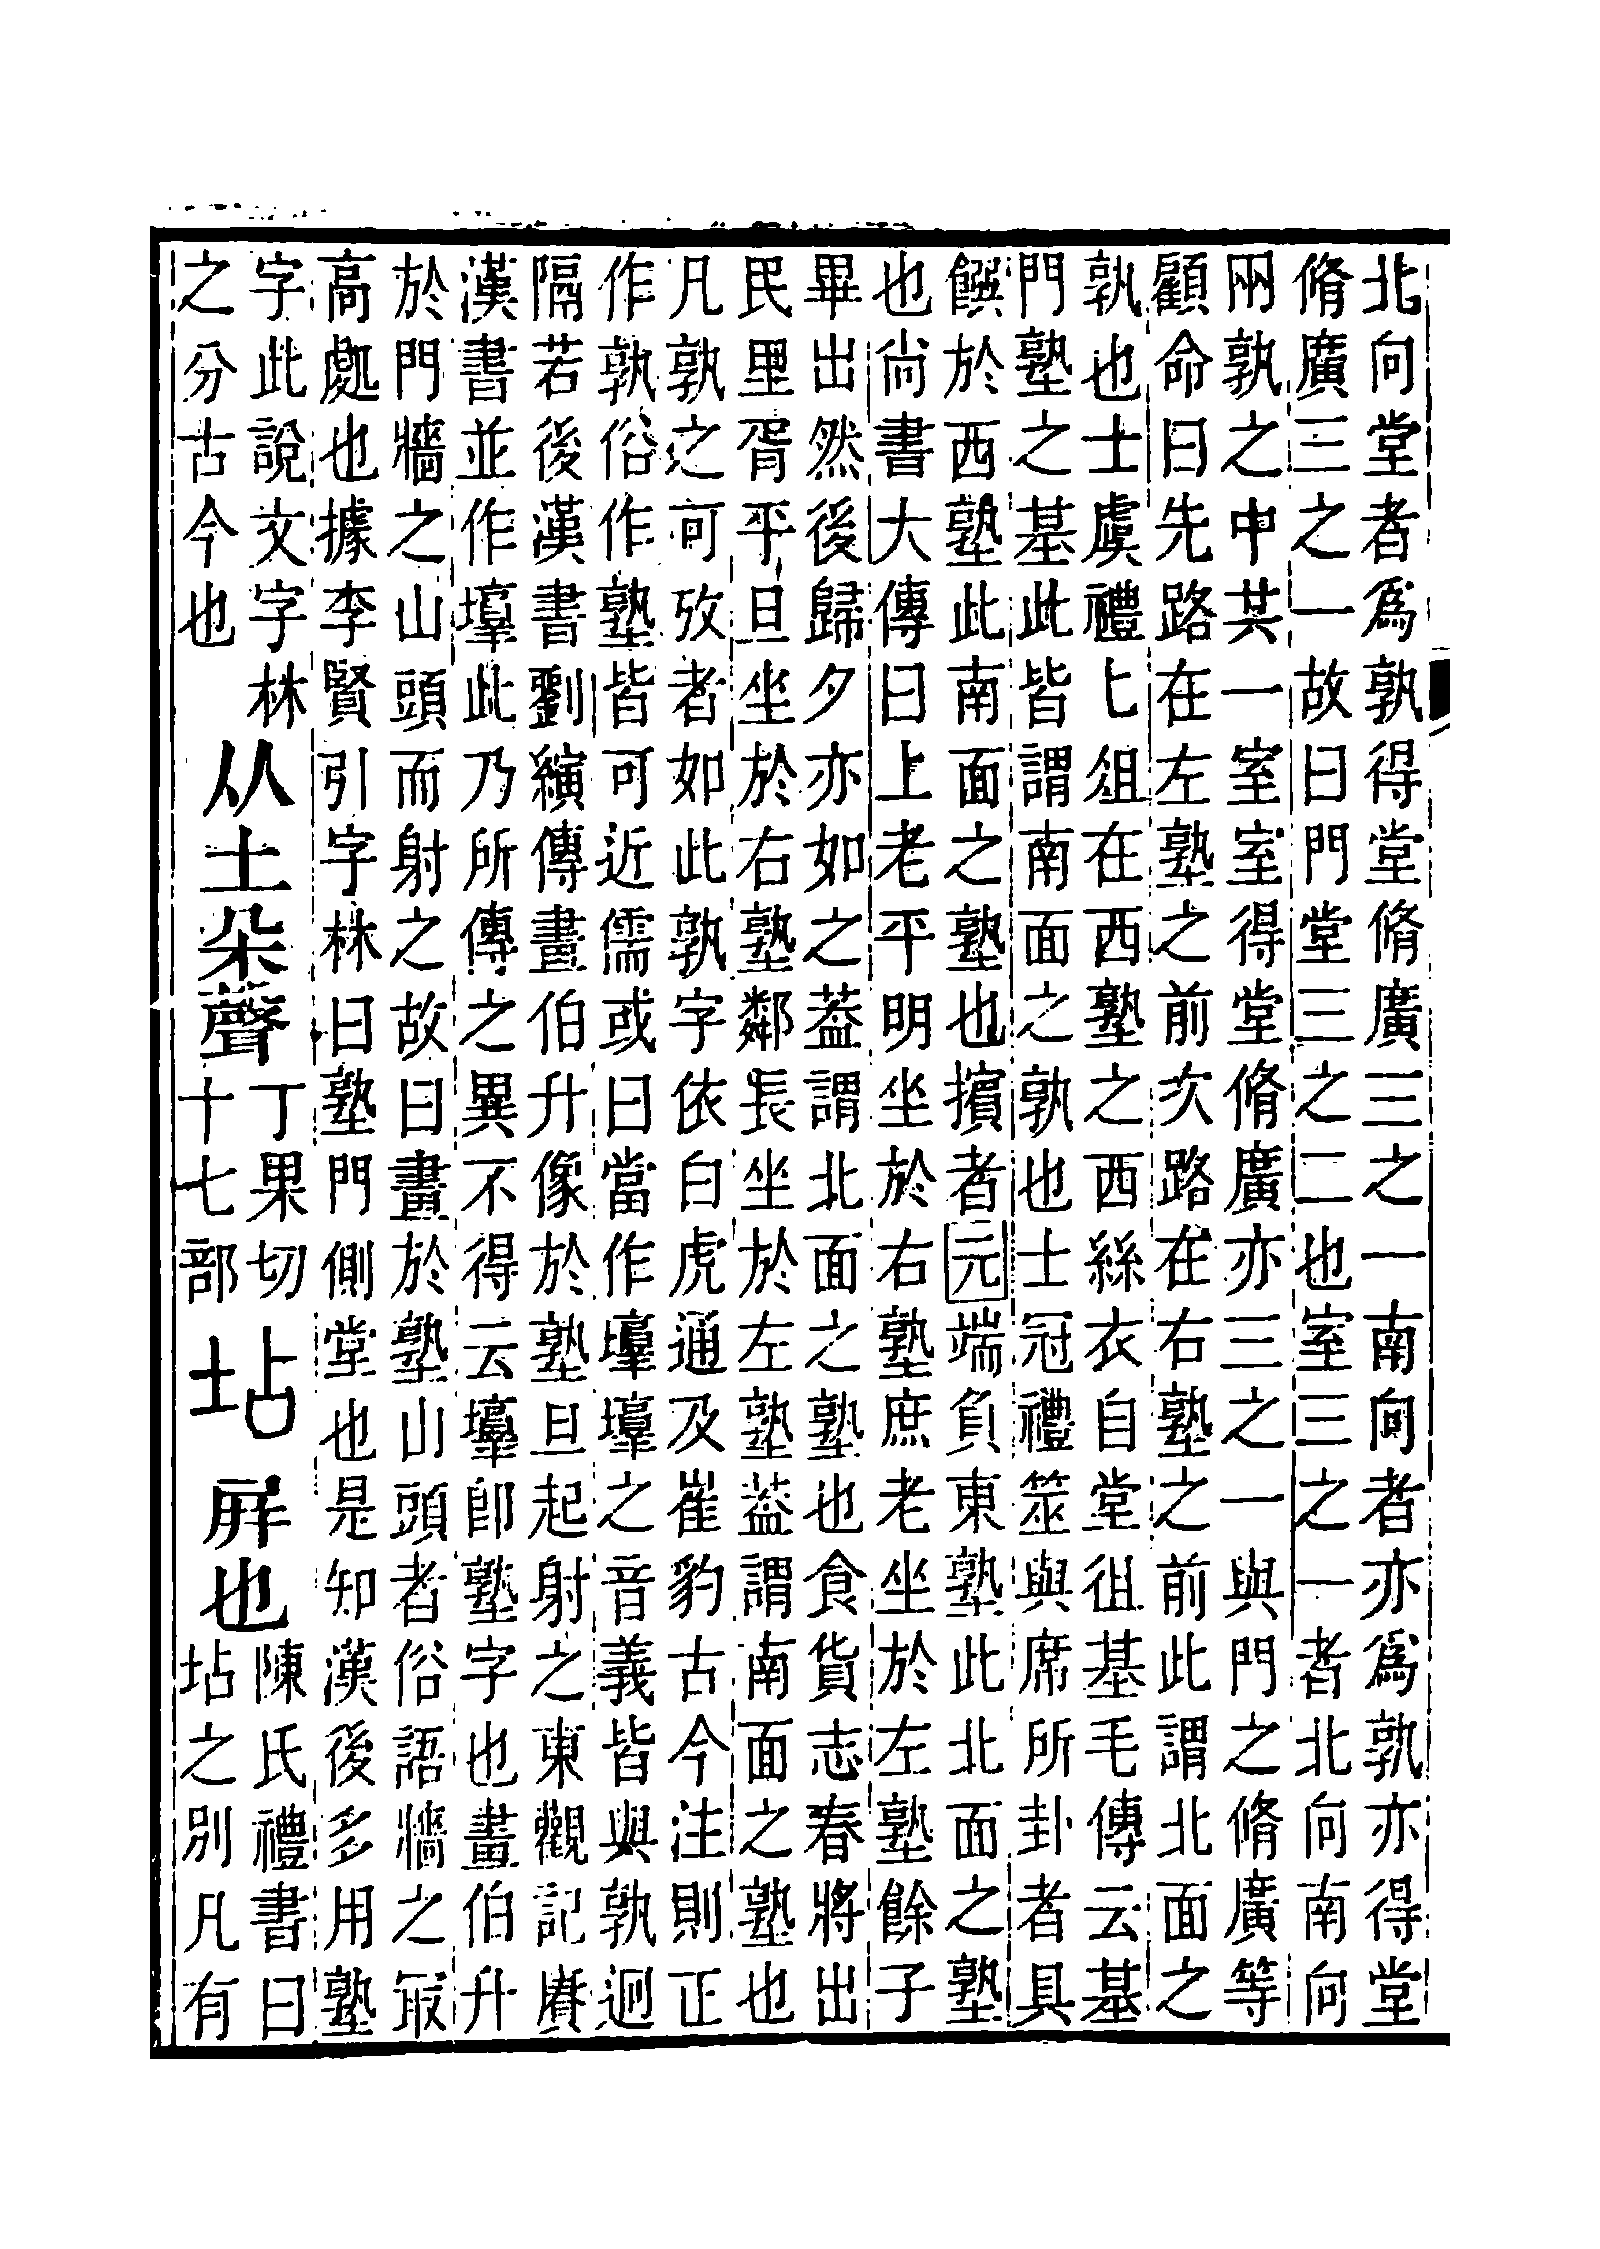 北向堂者爲孰得堂脩廣三之一南向者亦爲孰亦得堂
脩廣三之一故曰門堂三之二也室三之一者北向南向
兩孰之中共一室室得堂脩廣亦三之一與門之脩廣等
顧命曰先路在左塾之前次路在右塾之前此謂北面之
孰也士虞禮匕俎在西塾之西絲衣自堂徂基毛傳云基
門塾之基此皆謂南面之孰也士冠禮筮與席所卦者具
饌於西塾此南面之塾也擯者元端負東塾此北面之塾
也尙書大傳曰上老平明坐於右塾庶老坐於左塾餘子
畢出然後歸夕亦如之葢謂北面之塾也食貨志春將出
民里胥平旦坐於右塾鄰長坐於左塾葢謂南面之塾也
凡孰之可攷者如此孰字依白虎通及崔豹古今注則正
作孰俗作塾皆可近儒或曰當作𡑆𡑆之音義皆與孰迥
隔若後漢書劉縯傳畫伯升像於塾旦起射之東觀記賡
漢書並作𡑆此乃所傳之異不得云𡑆卽塾字也畫伯升
於門牆之山頭而射之故曰畫於塾山頭者俗語牆之㝡
高處也據李賢引字林曰塾門側堂也是知漢後多用塾
字此說文字林
之分古今也
从土朵聲
丁果切
十七部
坫
屛也
陳氏禮書曰
坫之別凡有